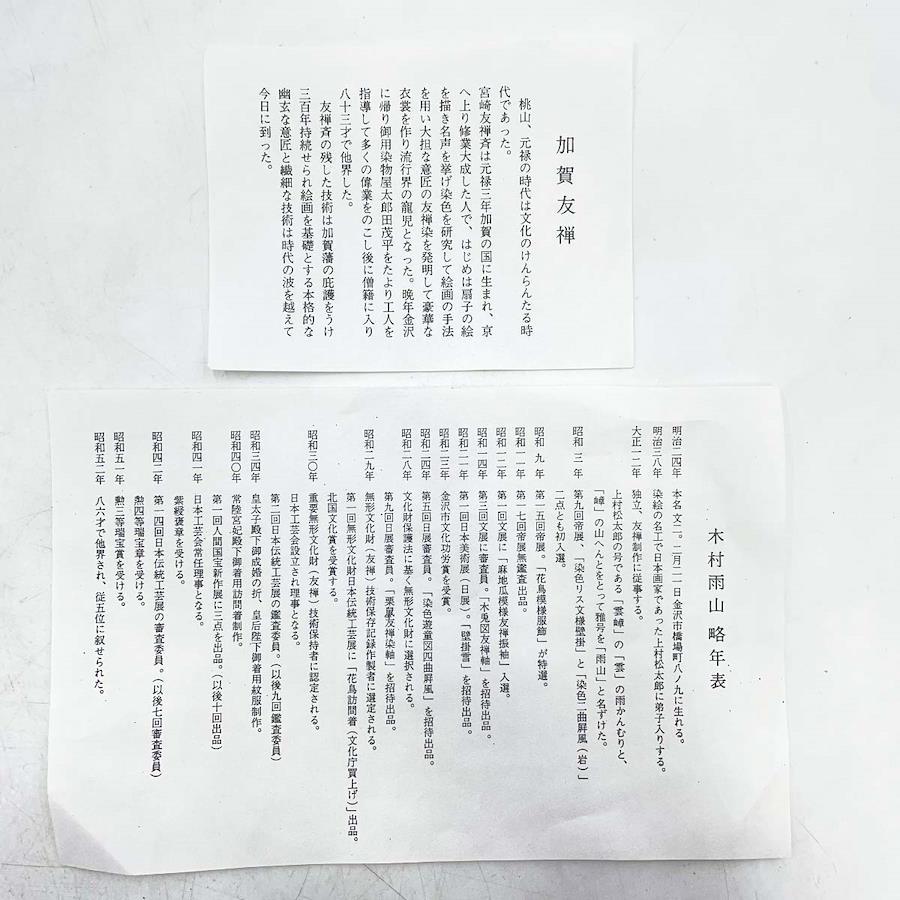 加賀友禅
桃山、元禄の時代は文化のけんらんたる時
代であった。
宮崎友禅斉は元禄三年加賀の国に生まれ、京
へ上り修業大成した人で、はじめは扇子の絵
を描き名声を挙げ染色を研究して絵画の手法
を用い大担な意匠の友禅染を発明して豪華な
衣裳を作り流行界の寵児となった。晩年金沢
に帰り御用染物屋太郎田茂平をたより工人を
指導して多くの偉業をのこし後に僧籍に入り
八十三才で他界した。
友禅斉の残した技術は加賀藩の庇護をうけ
三百年持続せられ絵画を基礎とする本格的な
幽玄な意匠と繊細な技術は時代の波を越えて
今日に到った。
木村雨山 略年表
明治二四年 本名文二。二月二一日金沢市橋場町八ノ九に生れる。
明治三八年 染絵の名工で日本画家であった上村松太郎に弟子入りする。
大正一二年 独立、友禅制作に従事する。
上村松太郎の号である「雲嶂」の「雲」の雨かんむりと、
「嶂」の山へんとをとって雅号を「雨山」と名ずけた。
昭和 三年 第九回帝展、「染色リス文様壁掛」と「染色二曲屏風（岩）」
二点とも初入選。
昭和 九年 第一五回帝展。「花鳥模様服飾」が特選。
昭和一一年 第一七回帝展無鑑査出品。
昭和一二年 第一回文展に「麻地瓜模様友禅振袖」入選。
昭和一四年 第三回文展に審査員。「木兎図友禅軸」を招待出品。
昭和二一年 第一回日本美術展（日展）。「壁掛雪」を招待出品。
昭和二三年 金沢市文化功労賞を受賞。
昭和二四年 第五回日展審査員。「染色遊童図四曲屏風」を招待出品。
昭和二八年 文化財保護法に基く無形文化財に選択される。
第九回日展審査員。「栗鼠友禅染軸」を招待出品。
昭和二九年 無形文化財（友禅）技術保存記録作製者に選定される。
第一回無形文化財日本伝統工芸展に「花鳥訪問着（文化庁買上げ）」出品。
北国文化賞を受賞する。
昭和三〇年 重要無形文化財（友禅）技術保持者に認定される。
日本工芸会設立され理事となる。
第二回日本伝統工芸展の鑑査委員。（以後九回鑑査委員）
昭和三四年 皇太子殿下御成婚の折、皇后陛下御着用紋服制作。
昭和四〇年 常陸宮妃殿下御着用訪問着制作。
第一回人間国宝新作展に三点を出品。（以後十回出品）
昭和四一年 日本工芸会常任理事となる。
紫綬褒章を受ける。
昭和四二年 第一四回日本伝統工芸展の審査委員。（以後七回審査委員）
勲四等瑞宝章を受ける。
昭和五一年 勲三等瑞宝賞を受ける。
昭和五二年 八六才で他界され、従五位に叙せられた。